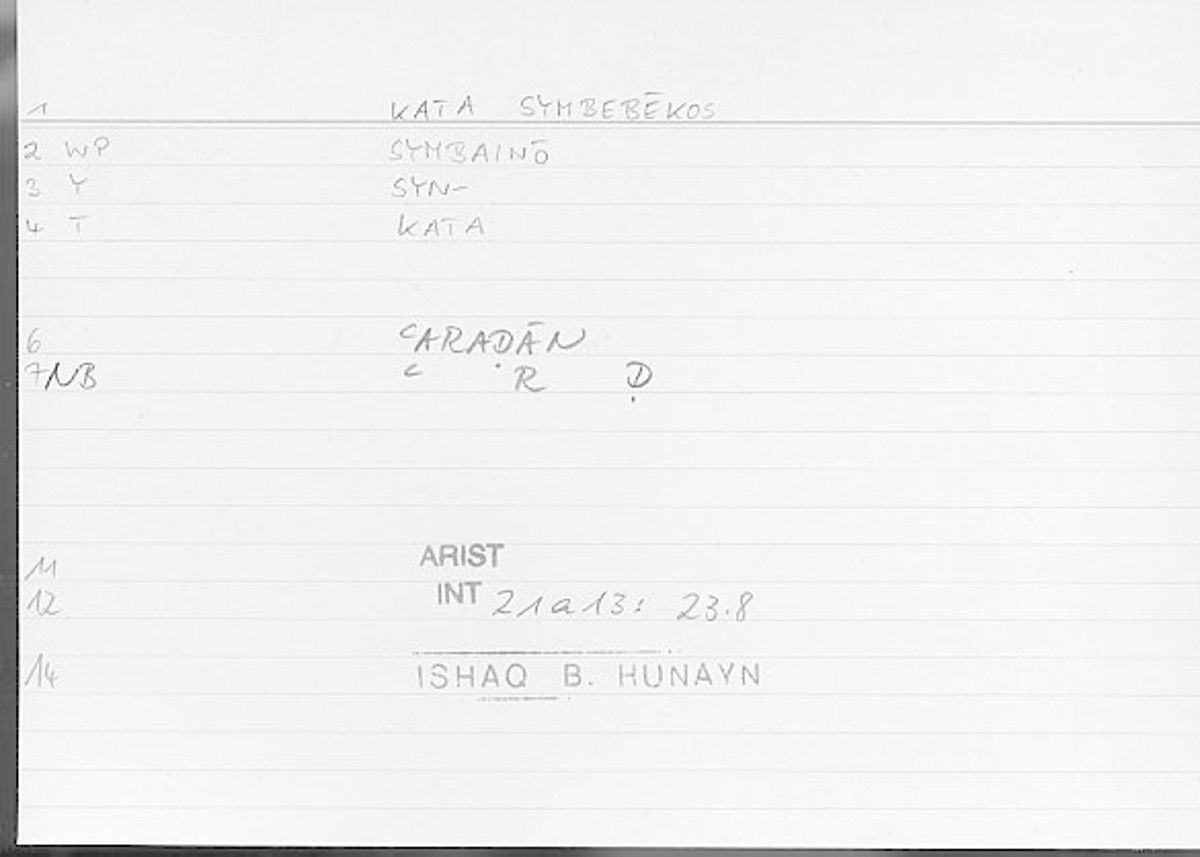 1 KATA SYMBEBĒKOS
2 WP SYMBAINŌ
3 Y SYN-
4 T KATA
6 ʿARAḌĀN
7 NB ʿ R Ḍ
11 ARIST
12 INT 21a13: 23.8
14 ISHAQ B. HUNAYN